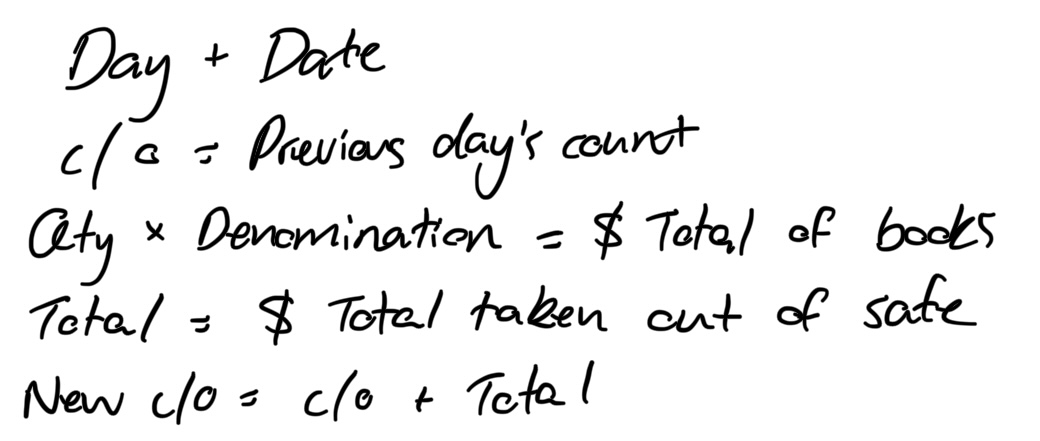 Day + Date
c/o = Previous day's count
Qty x Denomination = $ Total of books
Total = $ Total taken out of safe
New c/o = c/o + Total